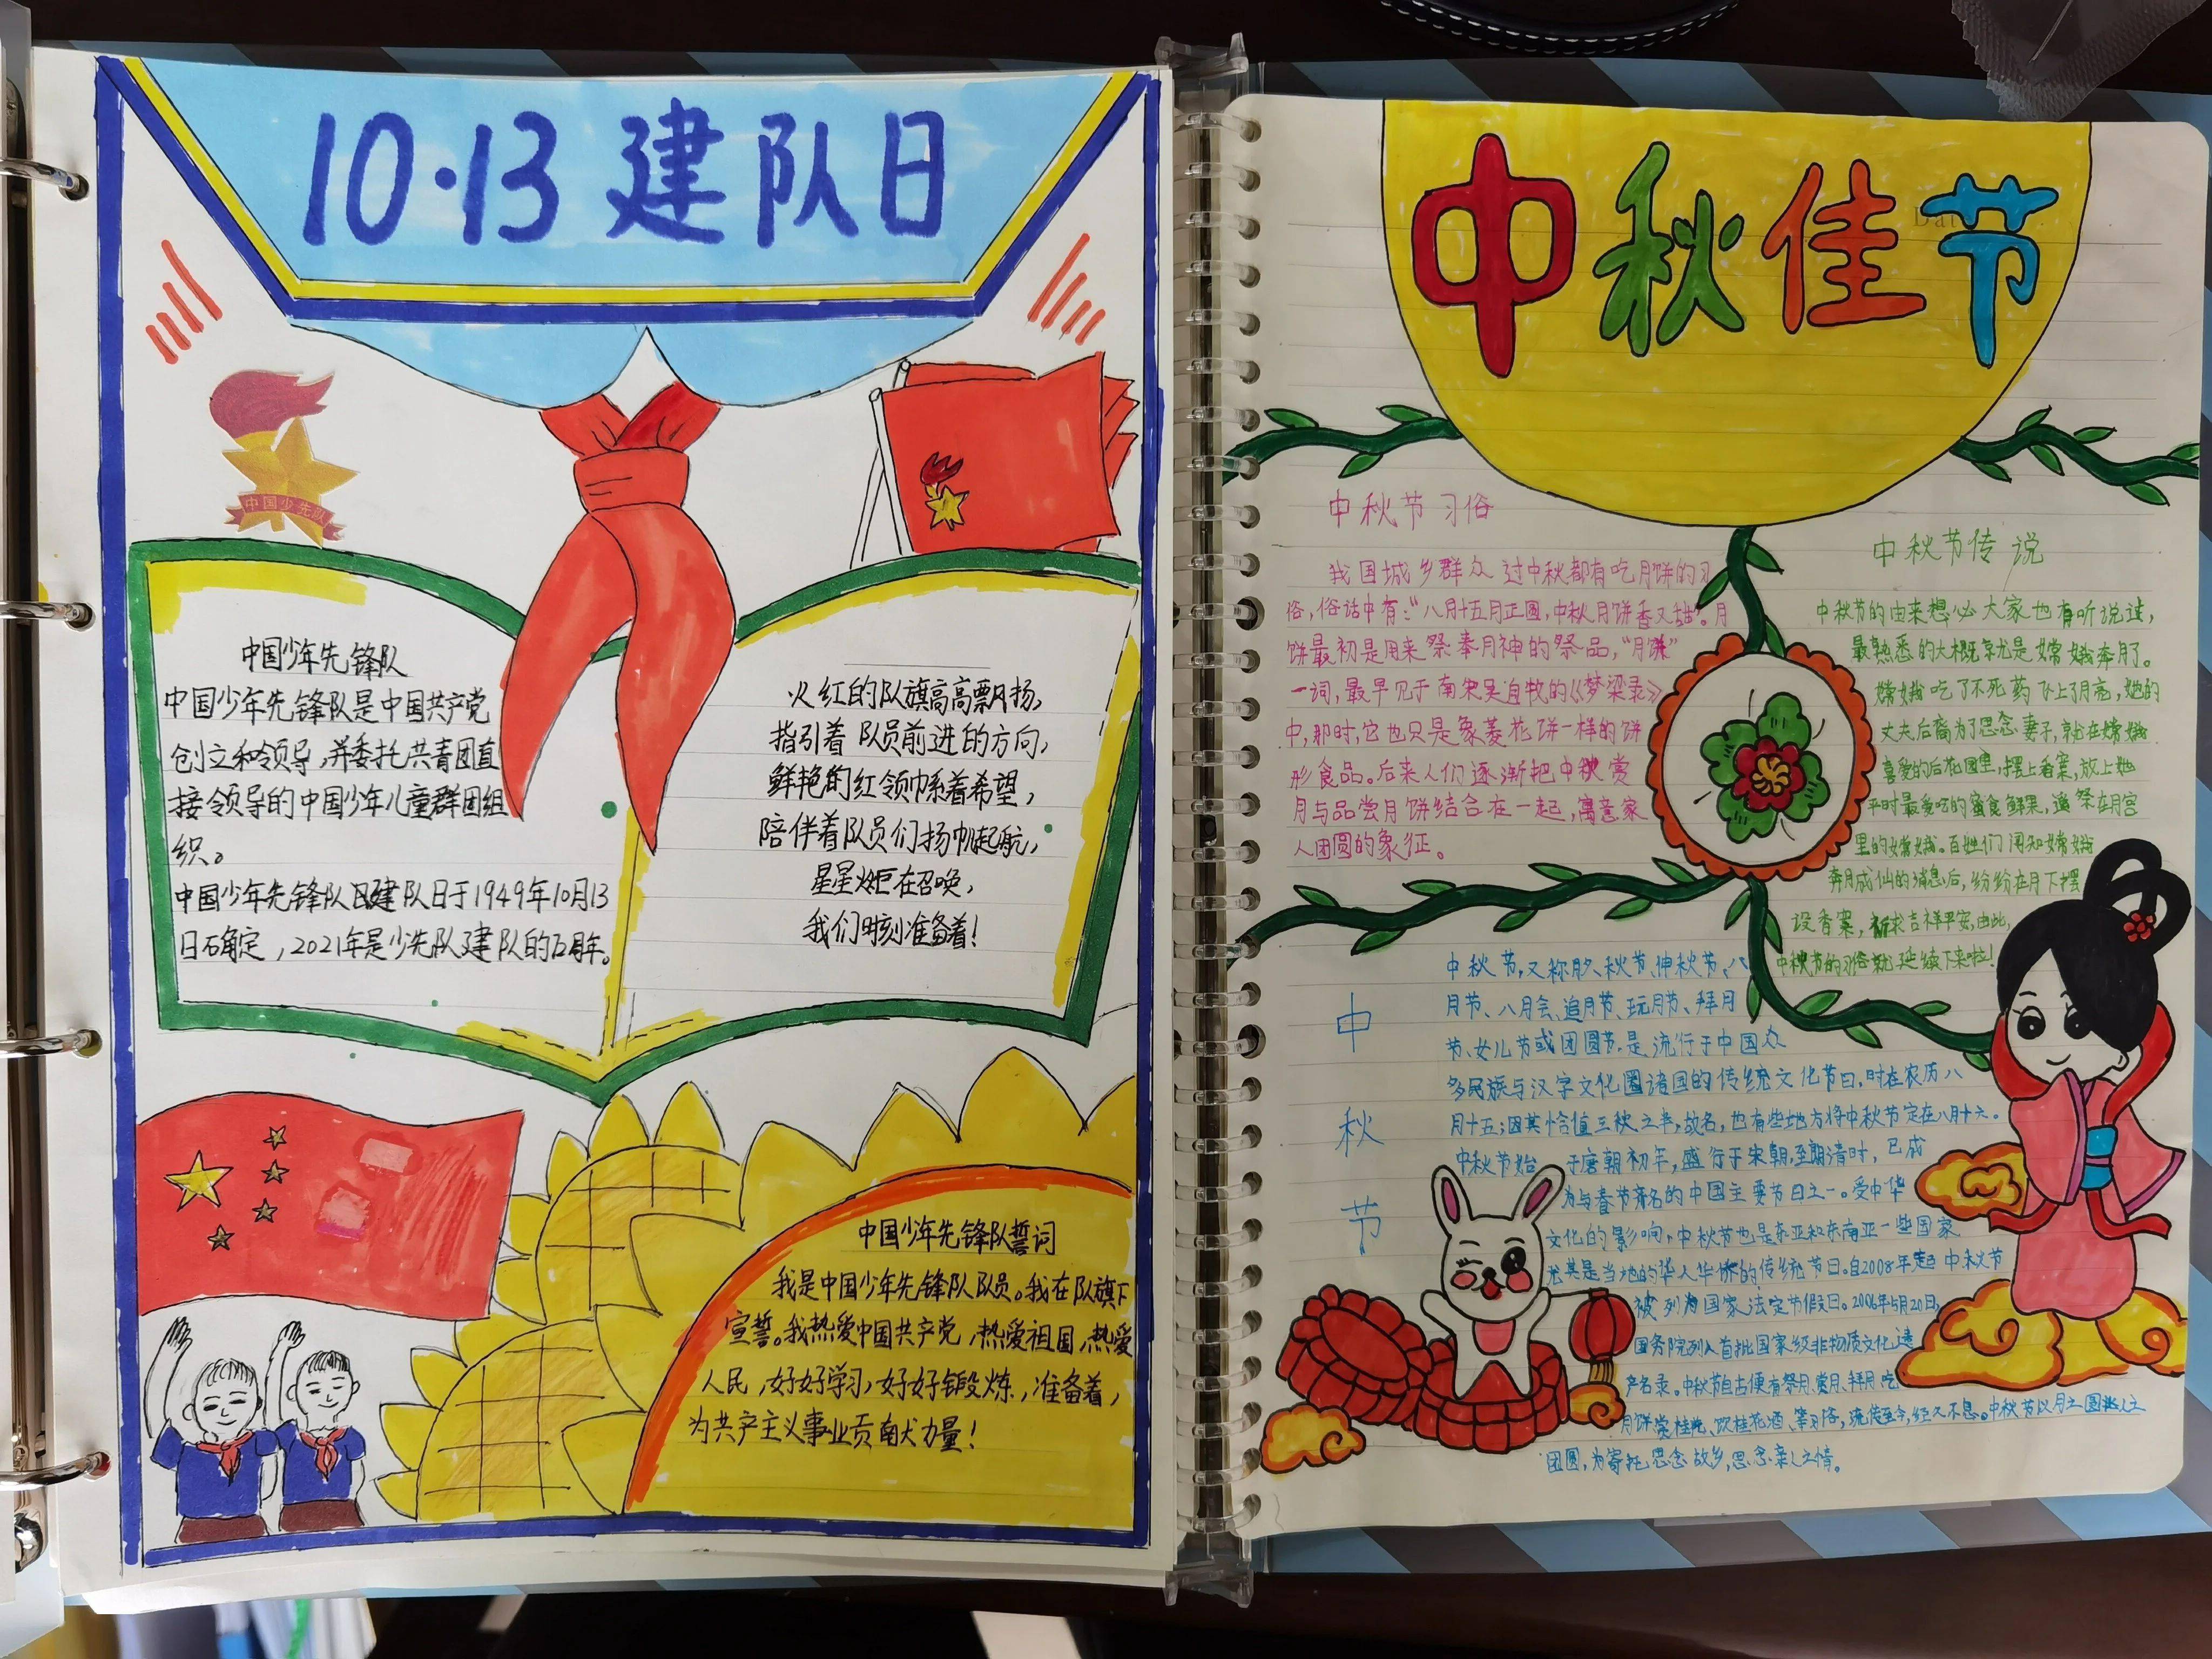 10·13建队日
中国少先队
中国少年先锋队
中国少年先锋队是中国共产党
创立和领导,并委托共青团直
接领导的中国少年儿童群团组
织。
中国少年先锋队建队日于1949年10月13
日确定,2021年是少先队建队的周年。
火红的队旗高高飘扬,
指引着队员前进的方向,
鲜艳的红领巾系着希望,
陪伴着队员们扬帆起航,
星星火炬在召唤,
我们时刻准备着!
中国少年先锋队誓词
我是中国少年先锋队队员。我在队旗下
宣誓。我热爱中国共产党,热爱祖国,热爱
人民,好好学习,好好锻炼,准备着,
为共产主义事业贡献力量!
中秋佳节
中秋节习俗
我国城乡群众过中秋都有吃月饼的习
俗,俗话中有:“八月十五月正圆,中秋月饼香又甜”。月
饼最初是用来祭奉月神的祭品,“月饼”
一词,最早见于南宋吴自牧的《梦梁录》
中,那时,它也只是象菱花饼一样的饼
形食品。后来人们逐渐把中秋赏
月与品尝月饼结合在一起,寓意家
人团圆的象征。
中秋节传说
中秋节的由来想必大家也有听说过,
最熟悉的大概就是嫦娥奔月了。
嫦娥吃了不死药飞上了月亮,她的
丈夫后裔为了思念妻子,就在嫦娥
喜爱的后花园里,摆上香案,放上她
平时最爱吃的蜜食鲜果,遥祭在月宫
里的嫦娥。百姓们闻知嫦娥
奔月成仙的消息后,纷纷在月下摆
设香案,祈求吉祥平安,由此,
中秋节的习俗就延续下来啦!
中秋节
中秋节,又称月夕、秋节、仲秋节、八
月节、八月会、追月节、玩月节、拜月
节、女儿节或团圆节,是流行于中国众
多民族与汉字文化圈诸国的传统文化节日,时在农历八
月十五;因其恰值三秋之半,故名,也有些地方将中秋节定在八月十六。
中秋节始于唐朝初年,盛行于宋朝,至明清时,已成
为与春节齐名的中国主要节日之一。受中华
文化的影响,中秋节也是东亚和东南亚一些国家
尤其是当地的华人华侨的传统节日。自2008年起中秋节
被列为国家法定节假日。2006年5月20日,
国务院列入首批国家级非物质文化遗
产名录。中秋节自古便有祭月、赏月、拜月、吃
月饼、赏桂花、饮桂花酒等习俗,流传至今,经久不息。中秋节以月之圆兆人之
团圆,为寄托思念故乡,思念亲人之情。